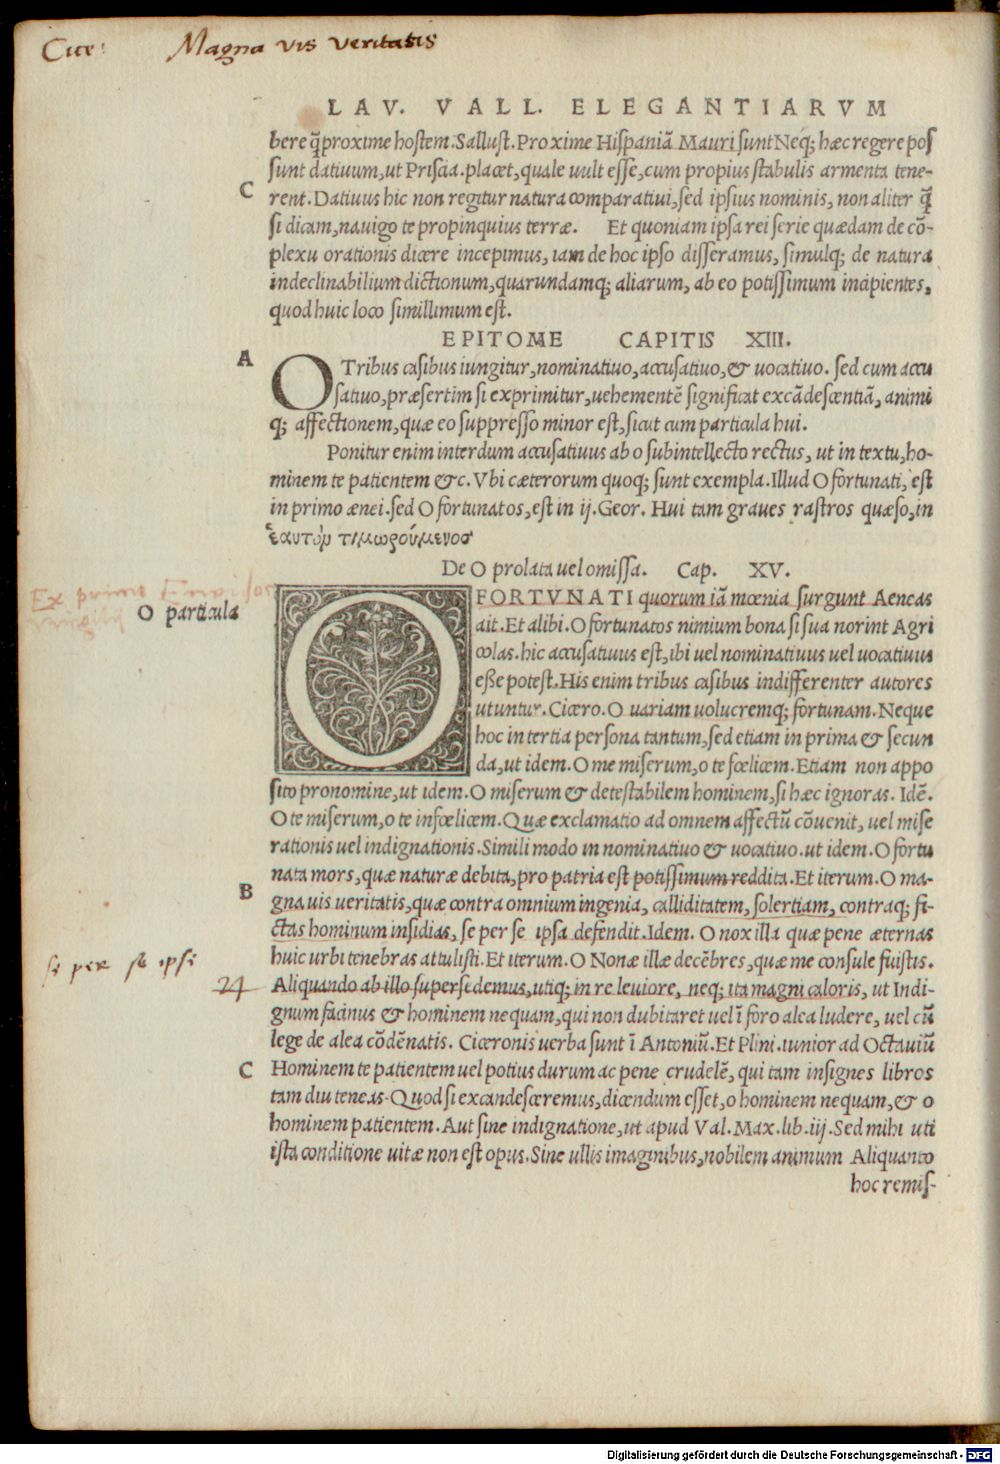 Cice: Magna vis veritatis
LAV. VALL. ELEGANTIARVM
bere q̃ proxime hostem. Sallust. Proxime Hispaniã Mauri sunt Neq; hæc regere pos
sunt datiuum, ut Priscia. placet, quale uult esse, cum propius stabulis armenta tene-
C
rent. Datiuus hic non regitur natura comparatiui, sed ipsius nominis, non aliter q̃
si dicam, nauigo te propinquius terræ. Et quoniam ipsa rei serie quædam de cõ-
plexu orationis dicere incepimus, iam de hoc ipso disseramus, simulq; de natura
indeclinabilium dictionum, quarundamq; aliarum, ab eo potissimum incipientes,
quod huic loco simillimum est.
EPITOME CAPITIS XIII.
A
O Tribus casibus iungitur, nominatiuo, accusatiuo, & uocatiuo. sed cum accu
satiuo, præsertim si exprimitur, uehementẽ significat excãdescentiã, animi
q; affectionem, quæ eo suppresso minor est, sicut cum particula hui.
Ponitur enim interdum accusatiuus ab o subintellecto rectus, ut in textu, ho-
minem te patientem &c. Vbi cæterorum quoq; sunt exempla. Illud O fortunati, est
in primo ænei. sed O fortunatos, est in ij. Geor. Hui tam graues rastros quæso, in
ἑαυτὸν τιμωρούμενοσ
De O prolata uel omissa. Cap. XV.
Ex primo
O particula
O FORTVNATI quorum iã mœnia surgunt Aeneas
ait. Et alibi. O fortunatos nimium bona si sua norint Agri
colas. hic accusatiuus est, ibi uel nominatiuus uel uocatiuus
esse potest. His enim tribus casibus indifferenter autores
utuntur. Cicero. O uariam uolucremq; fortunam. Neque
hoc in tertia persona tantum, sed etiam in prima & secun
da, ut idem. O me miserum, o te fœlicem. Etiam non appo
sito pronomine, ut idem. O miserum & detestabilem hominem, si hæc ignoras. Idẽ.
O te miserum, o te infœlicem. Quæ exclamatio ad omnem affectũ cõuenit, uel mise
rationis uel indignationis. Simili modo in nominatiuo & uocatiuo. ut idem. O fortu
nata mors, quæ naturæ debita, pro patria est potissimum reddita. Et iterum. O ma-
B
gna uis ueritatis, quæ contra omnium ingenia, calliditatem, solertiam, contraq; fi-
ctas hominum insidias, se per se ipsa defendit. Idem. O nox illa quæ pene æternas
se per se ipsi
huic urbi tenebras attulisti. Et iterum. O Nonæ illæ decẽbres, quæ me consule fuistis.
24
Aliquando ab illo supersedemus, utiq; in re leuiore, neq; ita magni caloris, ut Indi-
gnum facinus & hominem nequam, qui non dubitaret uel ĩ foro alea ludere, uel cũ
lege de alea cõdẽnatis. Ciceronis uerba sunt ĩ Antoniũ. Et Plini. iunior ad Octauiũ
C
Hominem te patientem uel potius durum ac pene crudelẽ, qui tam insignes libros
tam diu teneas. Quod si excandesceremus, dicendum esset, o hominem nequam, & o
hominem patientem. Aut sine indignatione, ut apud Val. Max. lib. iij. Sed mihi uti
ista conditione uitæ non est opus. Sine ullis imaginibus, nobilem animum Aliquanto
hoc remis-
Digitalisierung gefördert durch die Deutsche Forschungsgemeinschaft - DFG